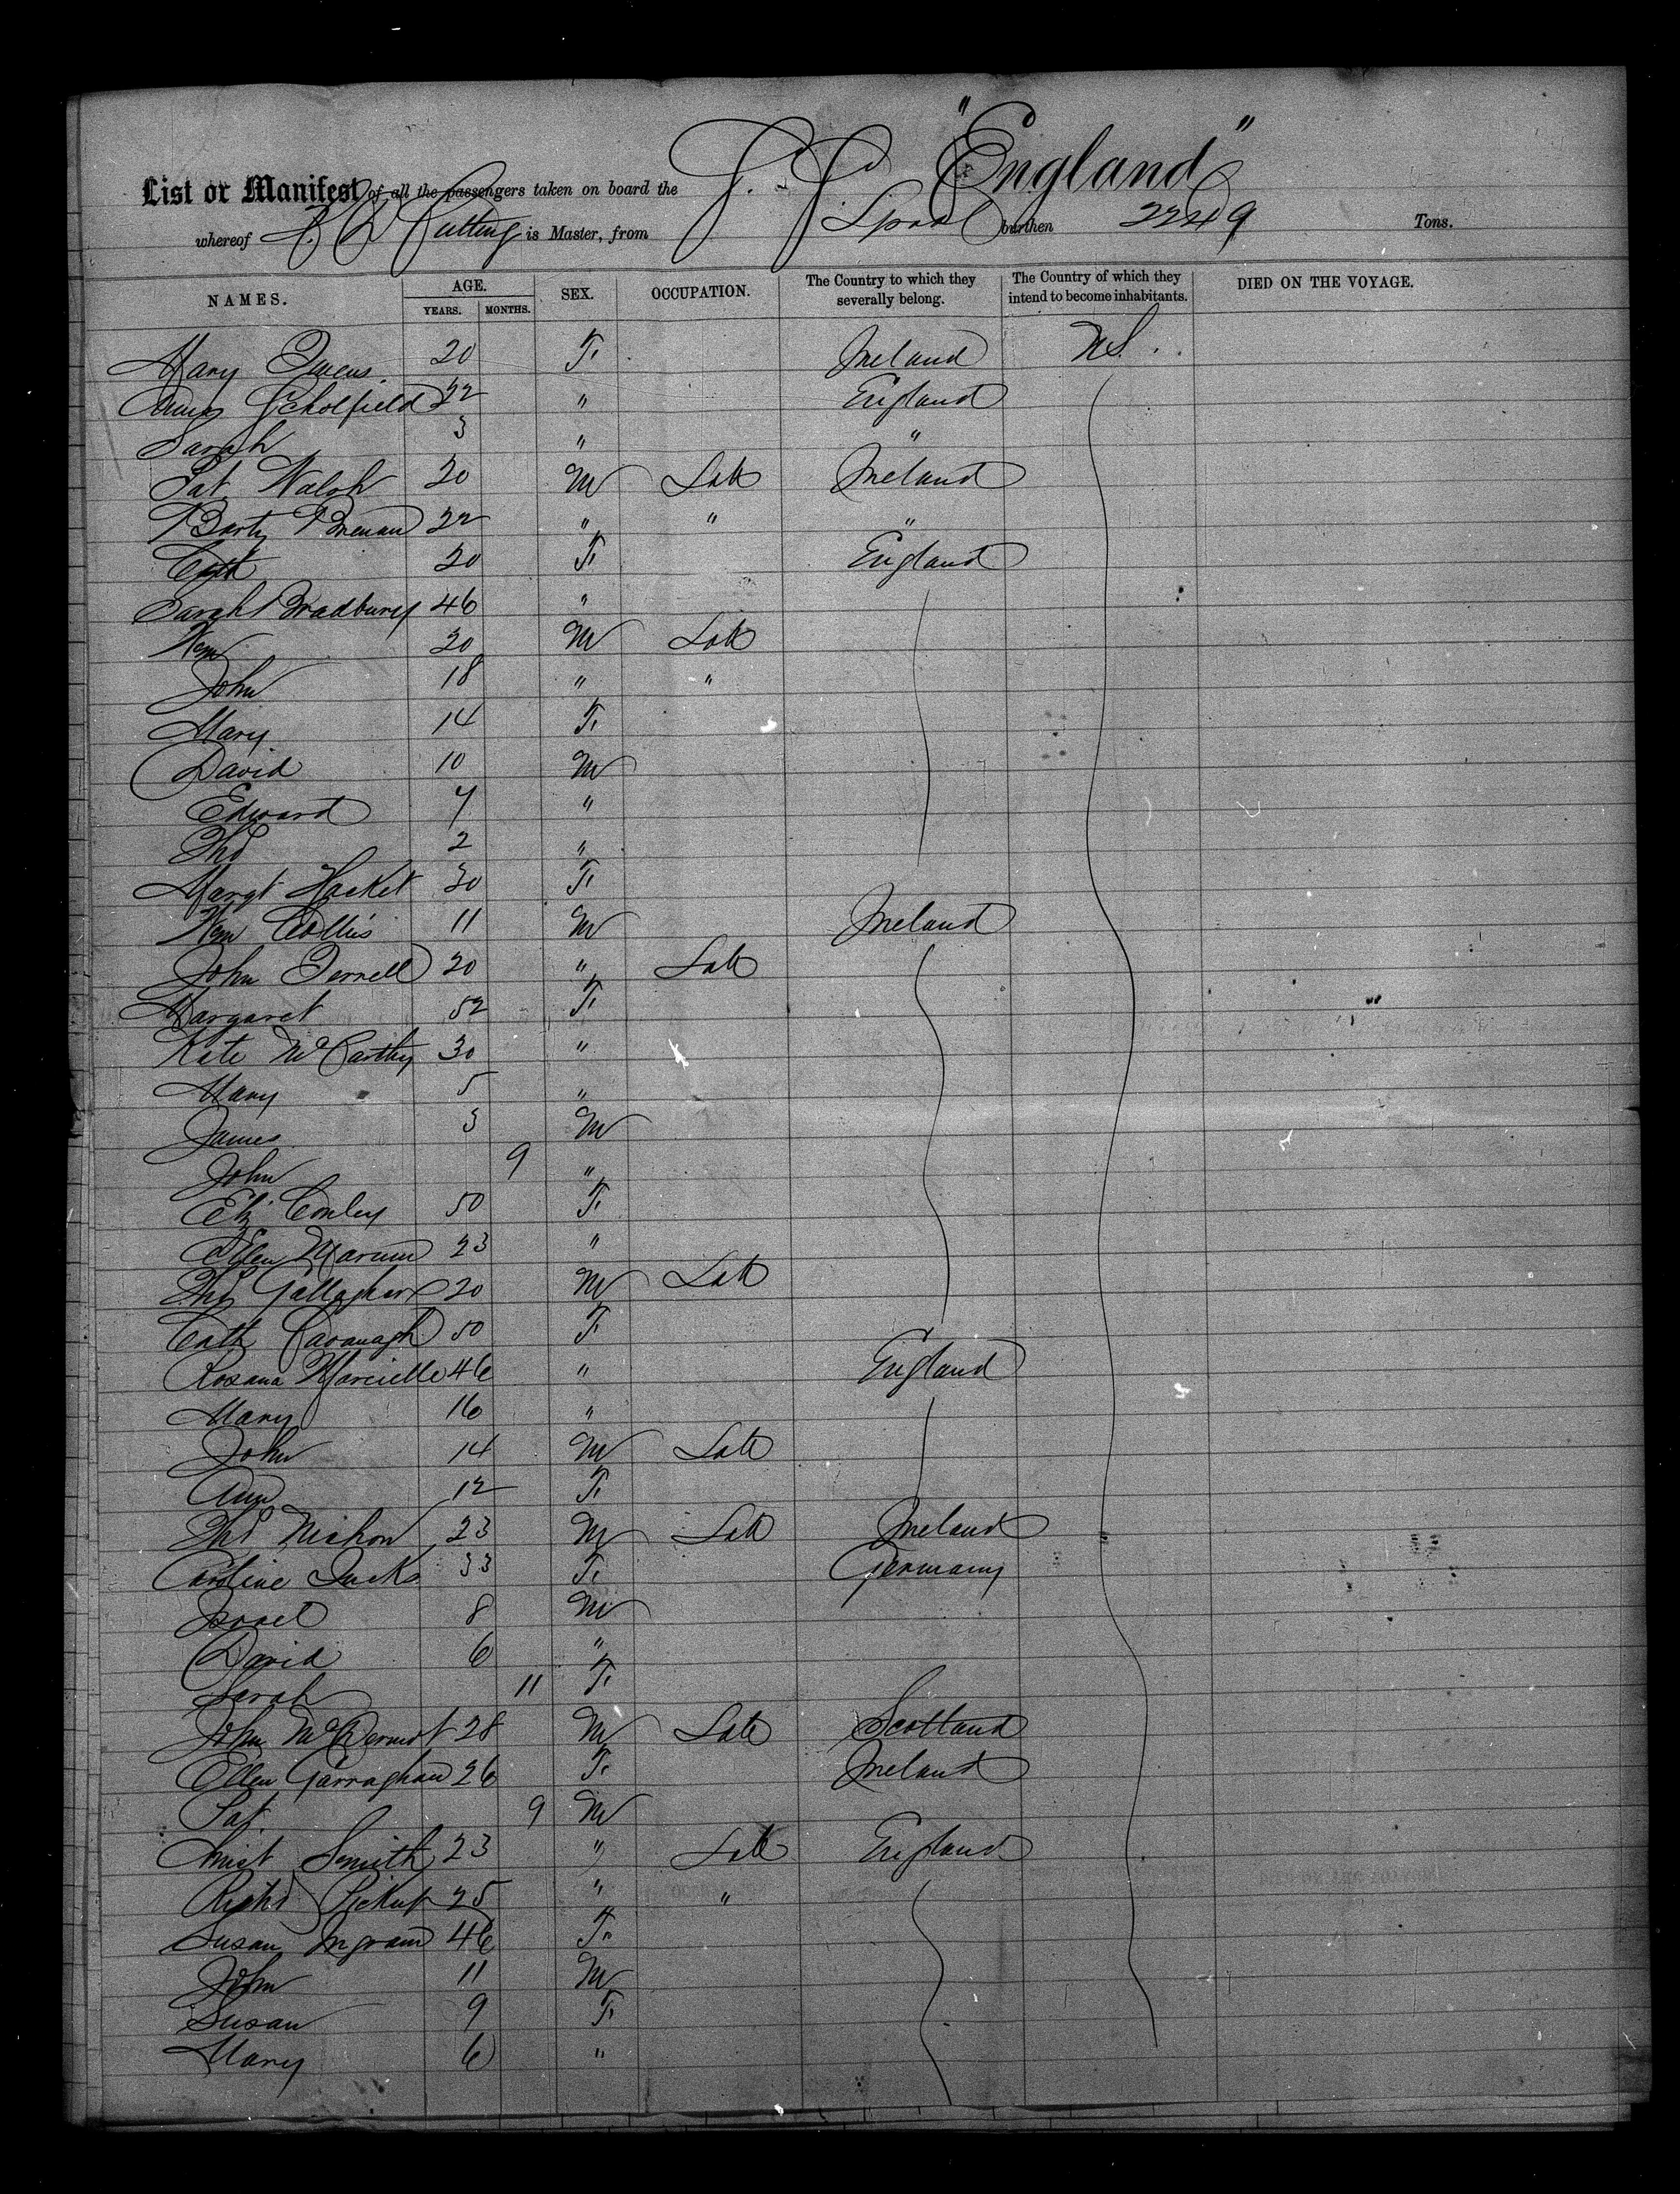 List or Manifest of all the passengers taken on board the S. S. "England"
whereof is Master, from Lpool burthen 2249 Tons.
NAMES. AGE. SEX. OCCUPATION. The Country to which they severally belong. The Country of which they intend to become inhabitants. DIED ON THE VOYAGE.
YEARS. MONTHS.
Mary Owens 20 F. Ireland U.S.
Scholfield 22 " England
Sarah 3 " "
Pat Walsh 20 M Lab Ireland
Barty Brenan 22 " " "
Cath 20 F. England
Sarah Bradbury 46 "
Wm 20 M Lab
John 18 " "
Mary 14 F.
David 10 M
Edward 7 "
Thos 2 "
Margt Hacket 30 F.
Wm Collis 11 M Ireland
John 20 " Lab
Margaret 52 F.
Kate McCarthy 30 "
Mary 5 "
James 3 M
John 9 "
Eliz Conley 50 F.
Ellen 23 "
Thos Gallagher 20 M Lab
Cath Cavanagh 50 F.
Rosana 46 " England
Mary 16 "
John 14 M Lab
Ann 12 F.
Thos 23 M Lab Ireland
Caroline 33 F. Germany
Israel 8 M
David 6 "
Sarah 11 F.
John McDermot 28 M Lab Scotland
Ellen Garraghan 26 F. Ireland
Pat. 9 M
Smith 23 " Lab England
Richd Pickup 25 " "
Susan Ingram 46 F.
John 11 M
Susan 9 F.
Mary 6 "